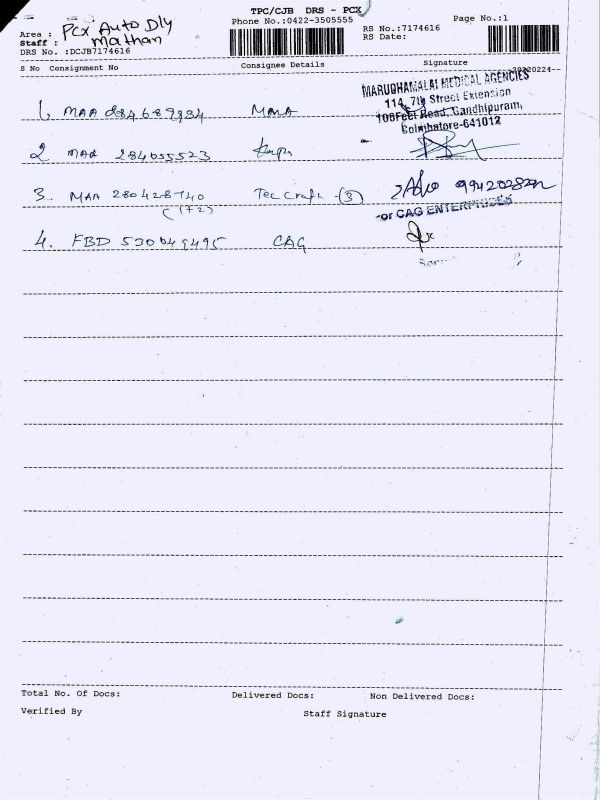 TPC/CJB DRS - PCX
Phone No.:0422-3505555
Page No.:1
Area : Pcx Auto Dly
Staff : Mathan
DRS No. :DCJB7174616
RS No.:7174616
RS Date:
S No Consignment No Consignee Details Signature
20220224--
MARUDHAMALAI MEDICAL AGENCIES
114, 7th Street Extension
100Feet Road, Gandhipuram,
Coimbatore-641012
1. MAA 284689934 MMA
2 MAA 284055523
3. MAA 280428740 Tec Craft (3)
(1+2)
-or CAG ENTERPRISES
4. FBD 530649495 CAG
Total No. Of Docs: Delivered Docs: Non Delivered Docs:
Verified By Staff Signature